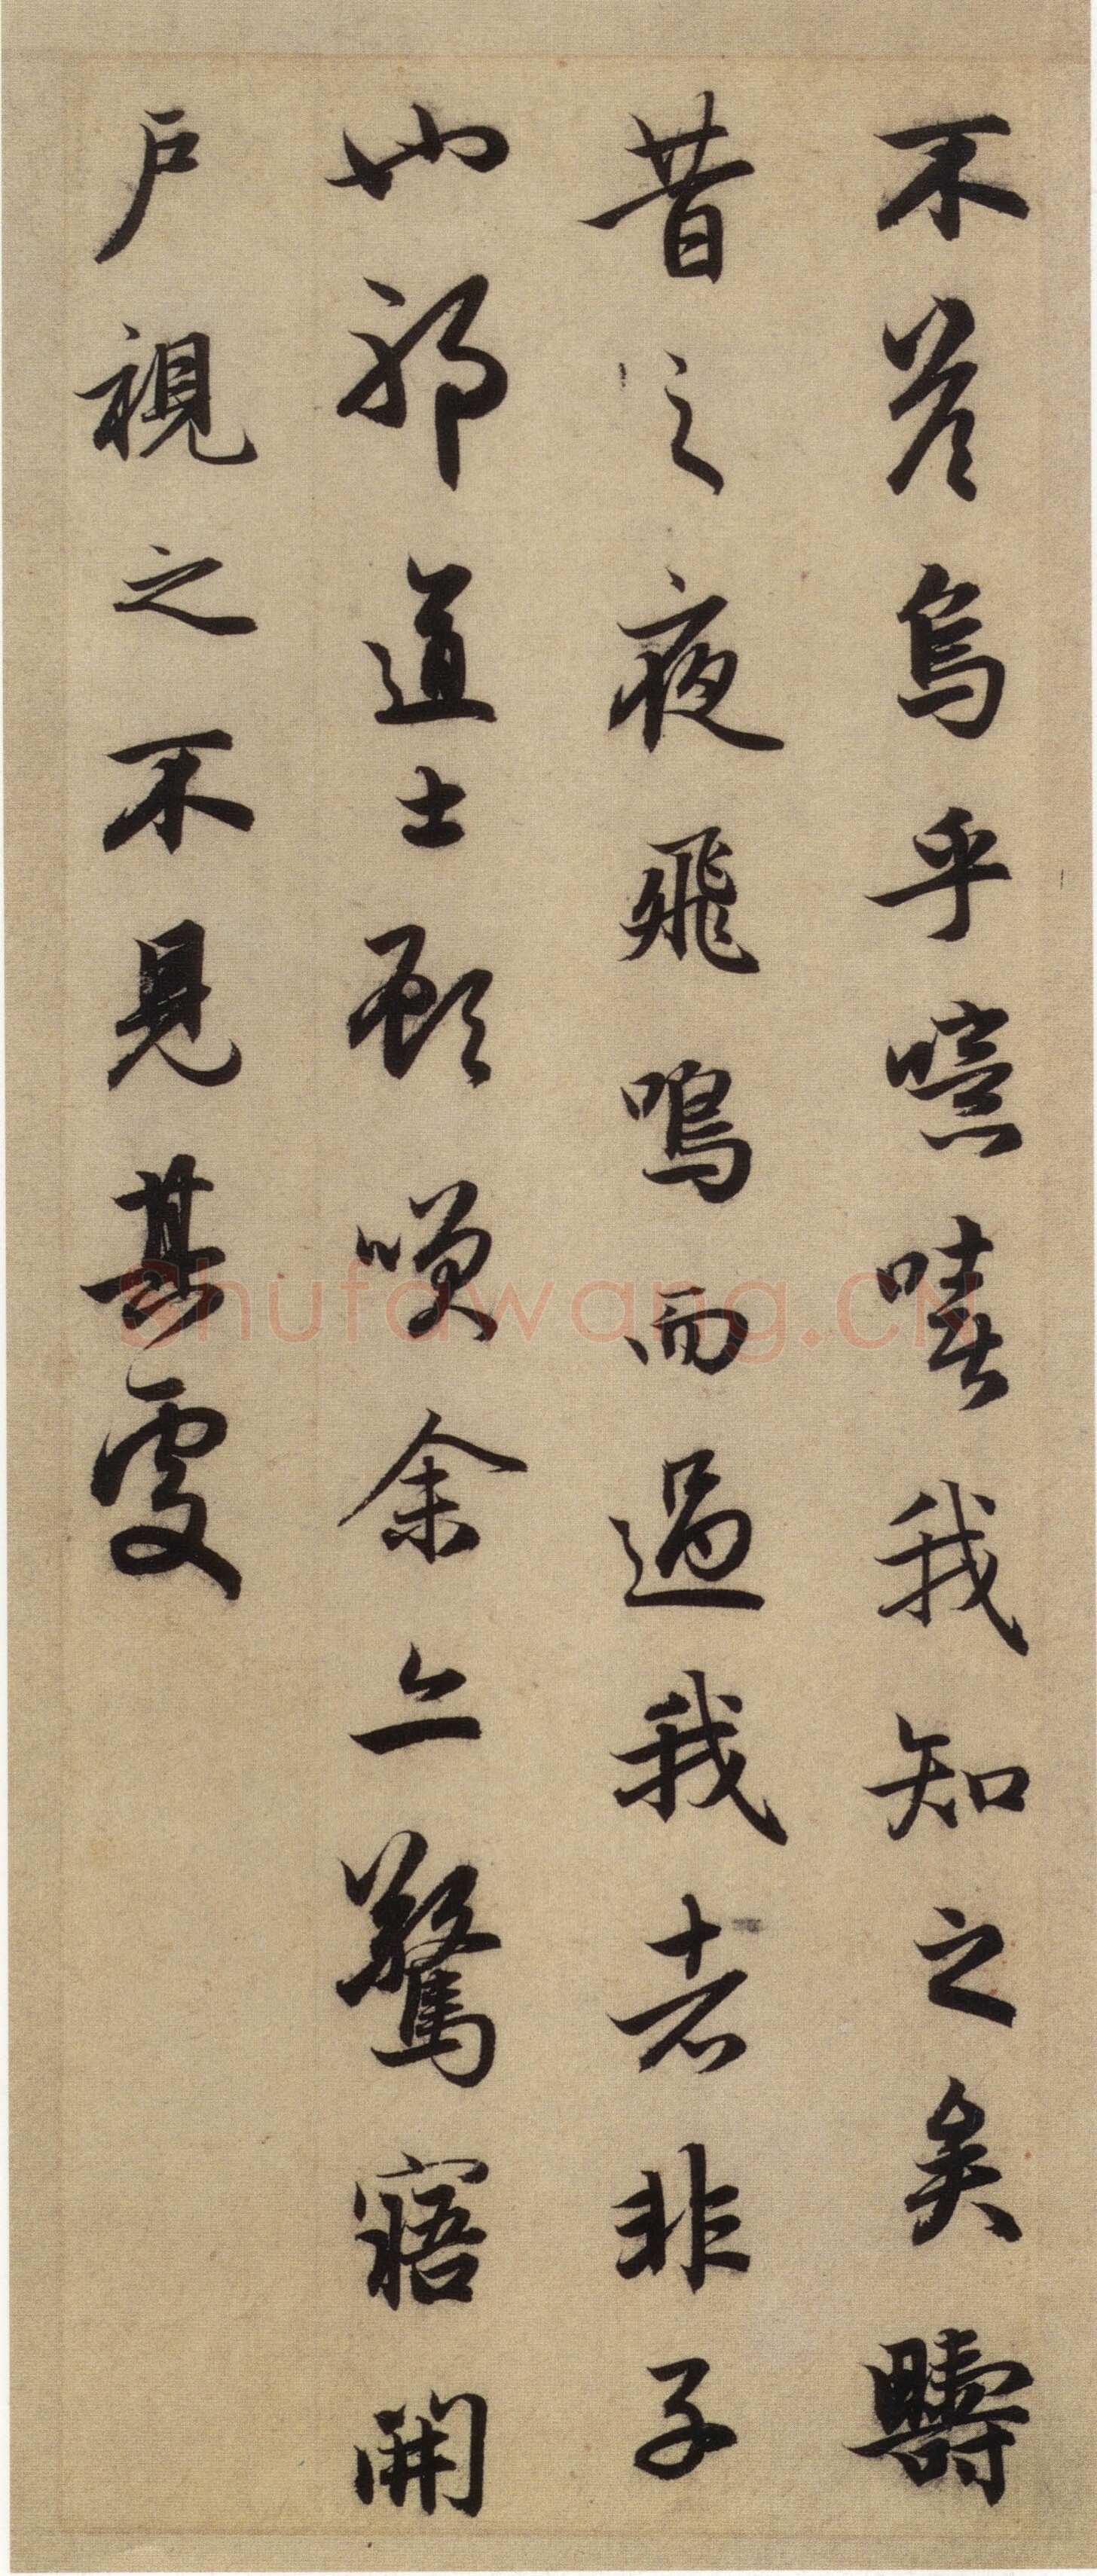 不答烏乎噫嘻我知之矣疇
昔之夜飛鳴而過我者非子
也邪道士顧笑余亦驚寤開
户視之不見其處
Shufawang.CN